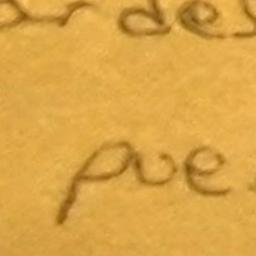 ar des
pue